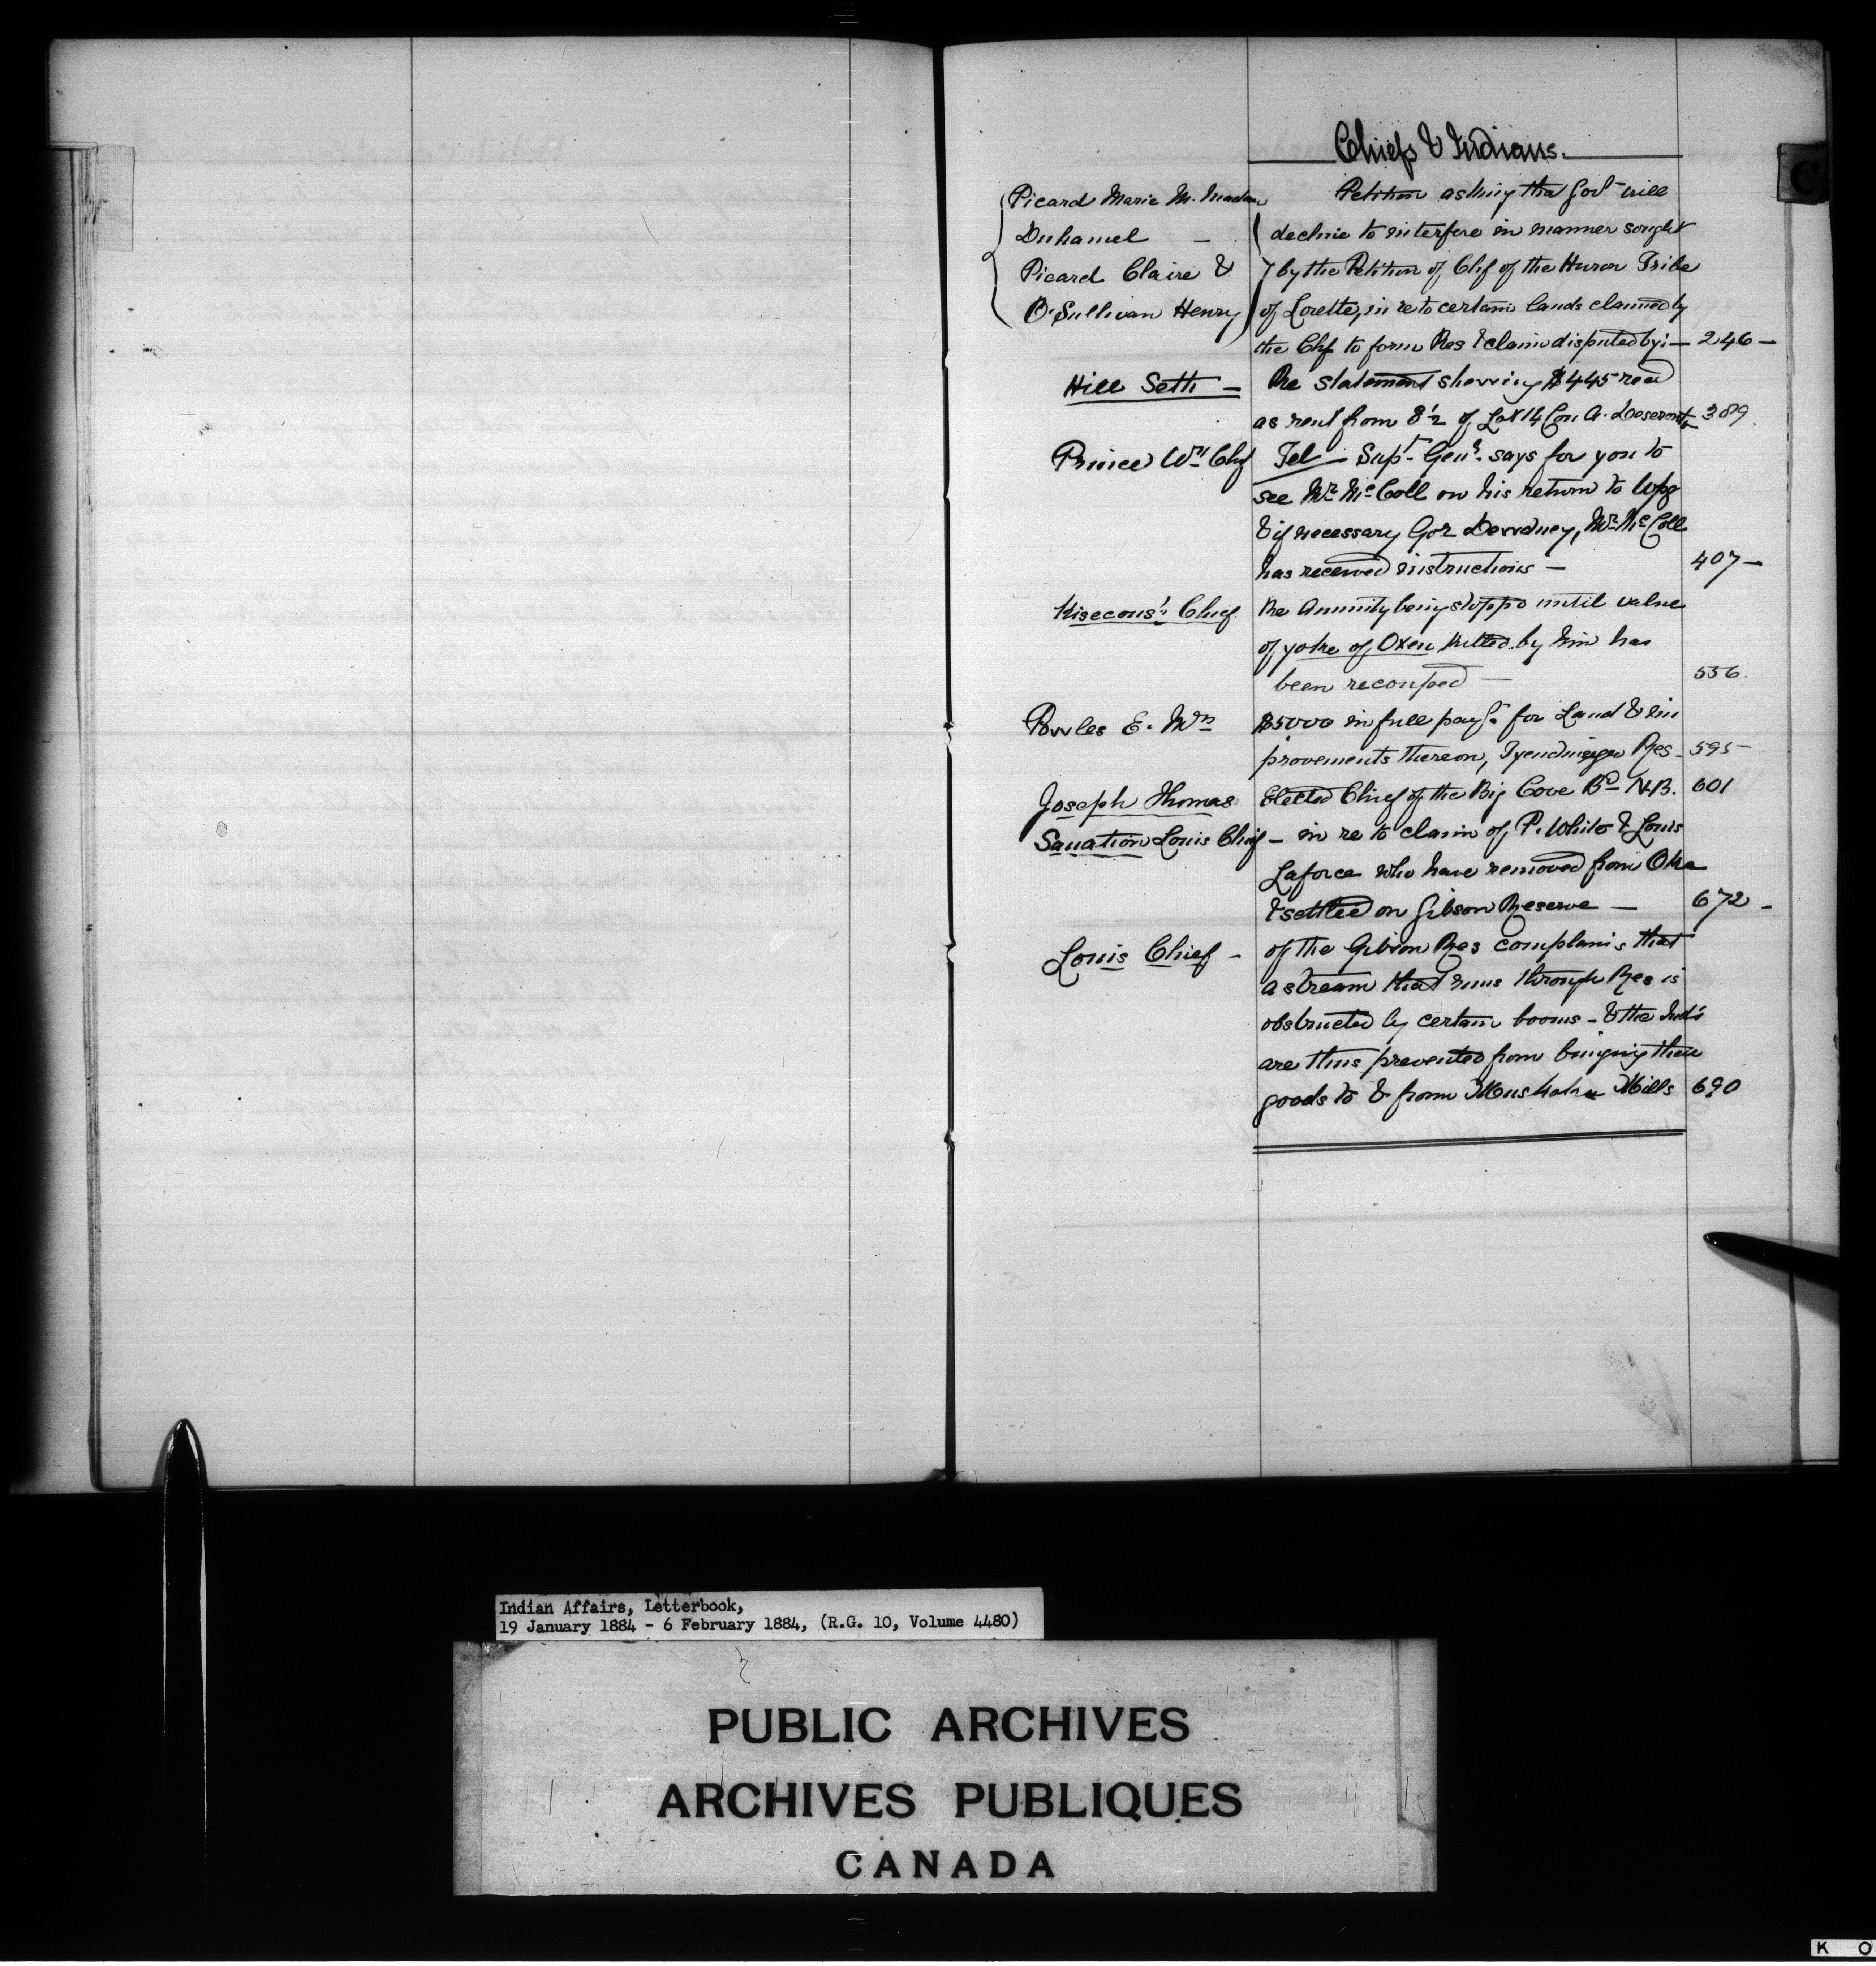 Chiefs & Indians.
Picard Marie M. Madam Petition asking tha Govt will
Duhamel - decline to interfere in manner sought
Picard Claire & by the Petition of Chf of the Huron Tribe
O'Sullivan Henry of Lorette, in re to certain lands claimed by
the Chf to form Res & claim disputed by:- 246-
Hill Seth - Re statement showing $445 recd
as rent from S½ of Lot 14 Con A. Deseronto 389.
Prince Wm Chf Tel - Supt. Genl. says for you to
see Mr McColl on his return to Wpg
& if necessary Gor Dewdney, Mr McColl
has received instructions - 407-
Kisecous' Chief Re Annuity being stoppd until value
of yoke of Oxen killed by him has
been recouped - 556.
Powles E. Mrs $5000 in full payt. for Land & im
provements thereon, Tyendinaga Res- 595-
Joseph Thomas Elected Chief of the Big Cove Bd N.B. 601
Sanation Louis Chief - in re to claim of P. White & Louis
Laforce who have removed from Oka
& settled on Gibson Reserve - 672-
Louis Chief - of the Gibson Res complains that
a stream that runs through Res is
obstructed by certain booms - & the Inds
are thus prevented from bringing their
goods to & from Muskoka Mills 690
C
Indian Affairs, Letterbook,
19 January 1884 - 6 February 1884, (R.G. 10, Volume 4480)
PUBLIC ARCHIVES
ARCHIVES PUBLIQUES
CANADA
K O